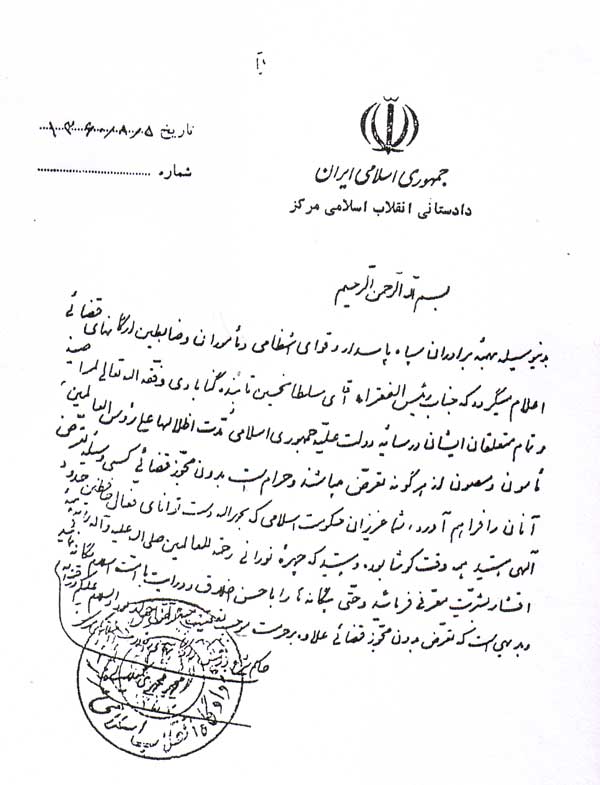 تاریخ ۱۳۶۰/۸/۰۵
شماره
جمهوری اسلامی ایران
دادستانی انقلاب اسلامی مرکز
بسم الله الرحمن الرحیم
بدینوسیله بهمهٔ برادران سپاه پاسدار و قوای انتظامی و مأموران و ضابطین ارگانهای قضائی
اعلام میگردد که جناب رئیس الفقراء آقای سلطانحسین تابنده گنابادی وفقه اله تعالی لمراضیه
و تمام متعلقان ایشان در سایهٔ دولت علیّه جمهوری اسلامی مدّت اظلالها علی رؤس العالمین
مأمون و مصون از هرگونه تعرّض میباشند و حرام است بدون مجوّز قضائی کسی وسیله تعرّض
آنان را فراهم آورد، شما عزیزان حکومت اسلامی که بحمداله دست توانای فعال حافظین حدود
آلهی هستید همه وقت کوشا بوده و هستید که چهرهٔ نورانی رحمة للعالمین صلی اله علیه و آله را به همهٔ
اقشار بشریّت معرّفی فرمائید و حتّی بیگانه‌ها را با حسن اخلاق و درایت با است اسلام
و بدیهی است که تعرّض بدون مجوّز قضائی علاوه بر حرمت
حاکم شرع
دادگاه انقلاب اسلامی